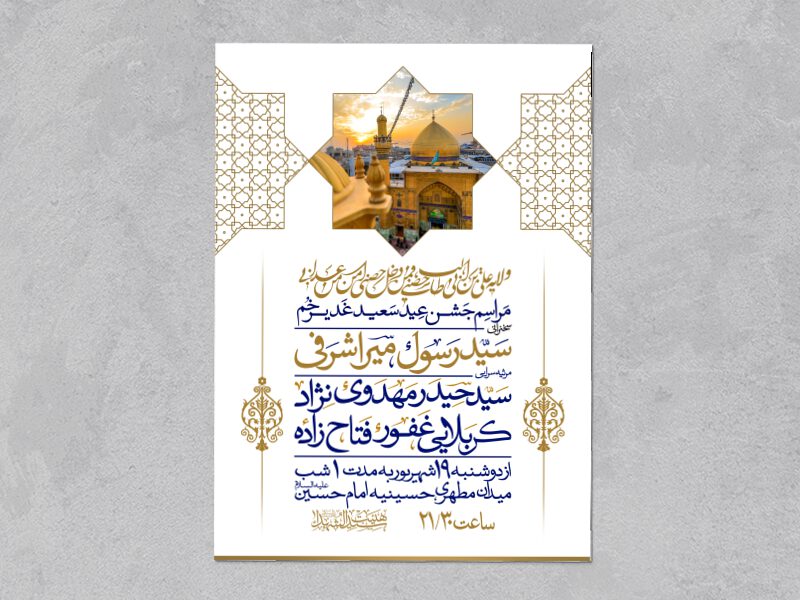 ولایة علی بن ابی طالب حصنی فمن دخل حصنی امن من عذابی
مراسم جشن عید سعید غدیر خم
سخنرانی
سید رسول میراشرفی
مرثیه سرایی
سید حیدر مهدوی نژاد
کربلایی غفور فتاح زاده
از دوشنبه ۱۹ شهریور به مدت ۱ شب
میدان مطهری حسینیه امام حسین علیه السلام
ساعت ۲۱/۳۰
هیئت سیدالشهداء